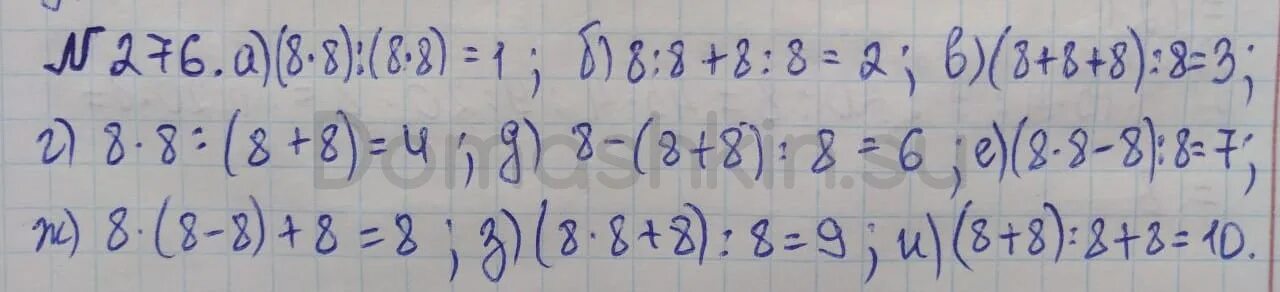 № 276. а) (8·8):(8·8) = 1; б) 8:8+8:8 = 2; в) (8+8+8):8=3;
г) 8·8:(8+8)=4; д) 8-(8+8):8 = 6; е) (8·8-8):8=7;
Domashkin.su
ж) 8·(8-8)+8=8; з) (8·8+8):8=9; и) (8+8):8+8=10.